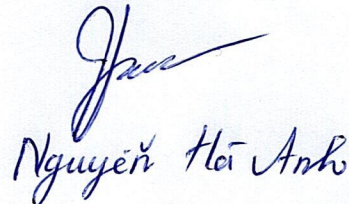 Nguyễn Hà Anh